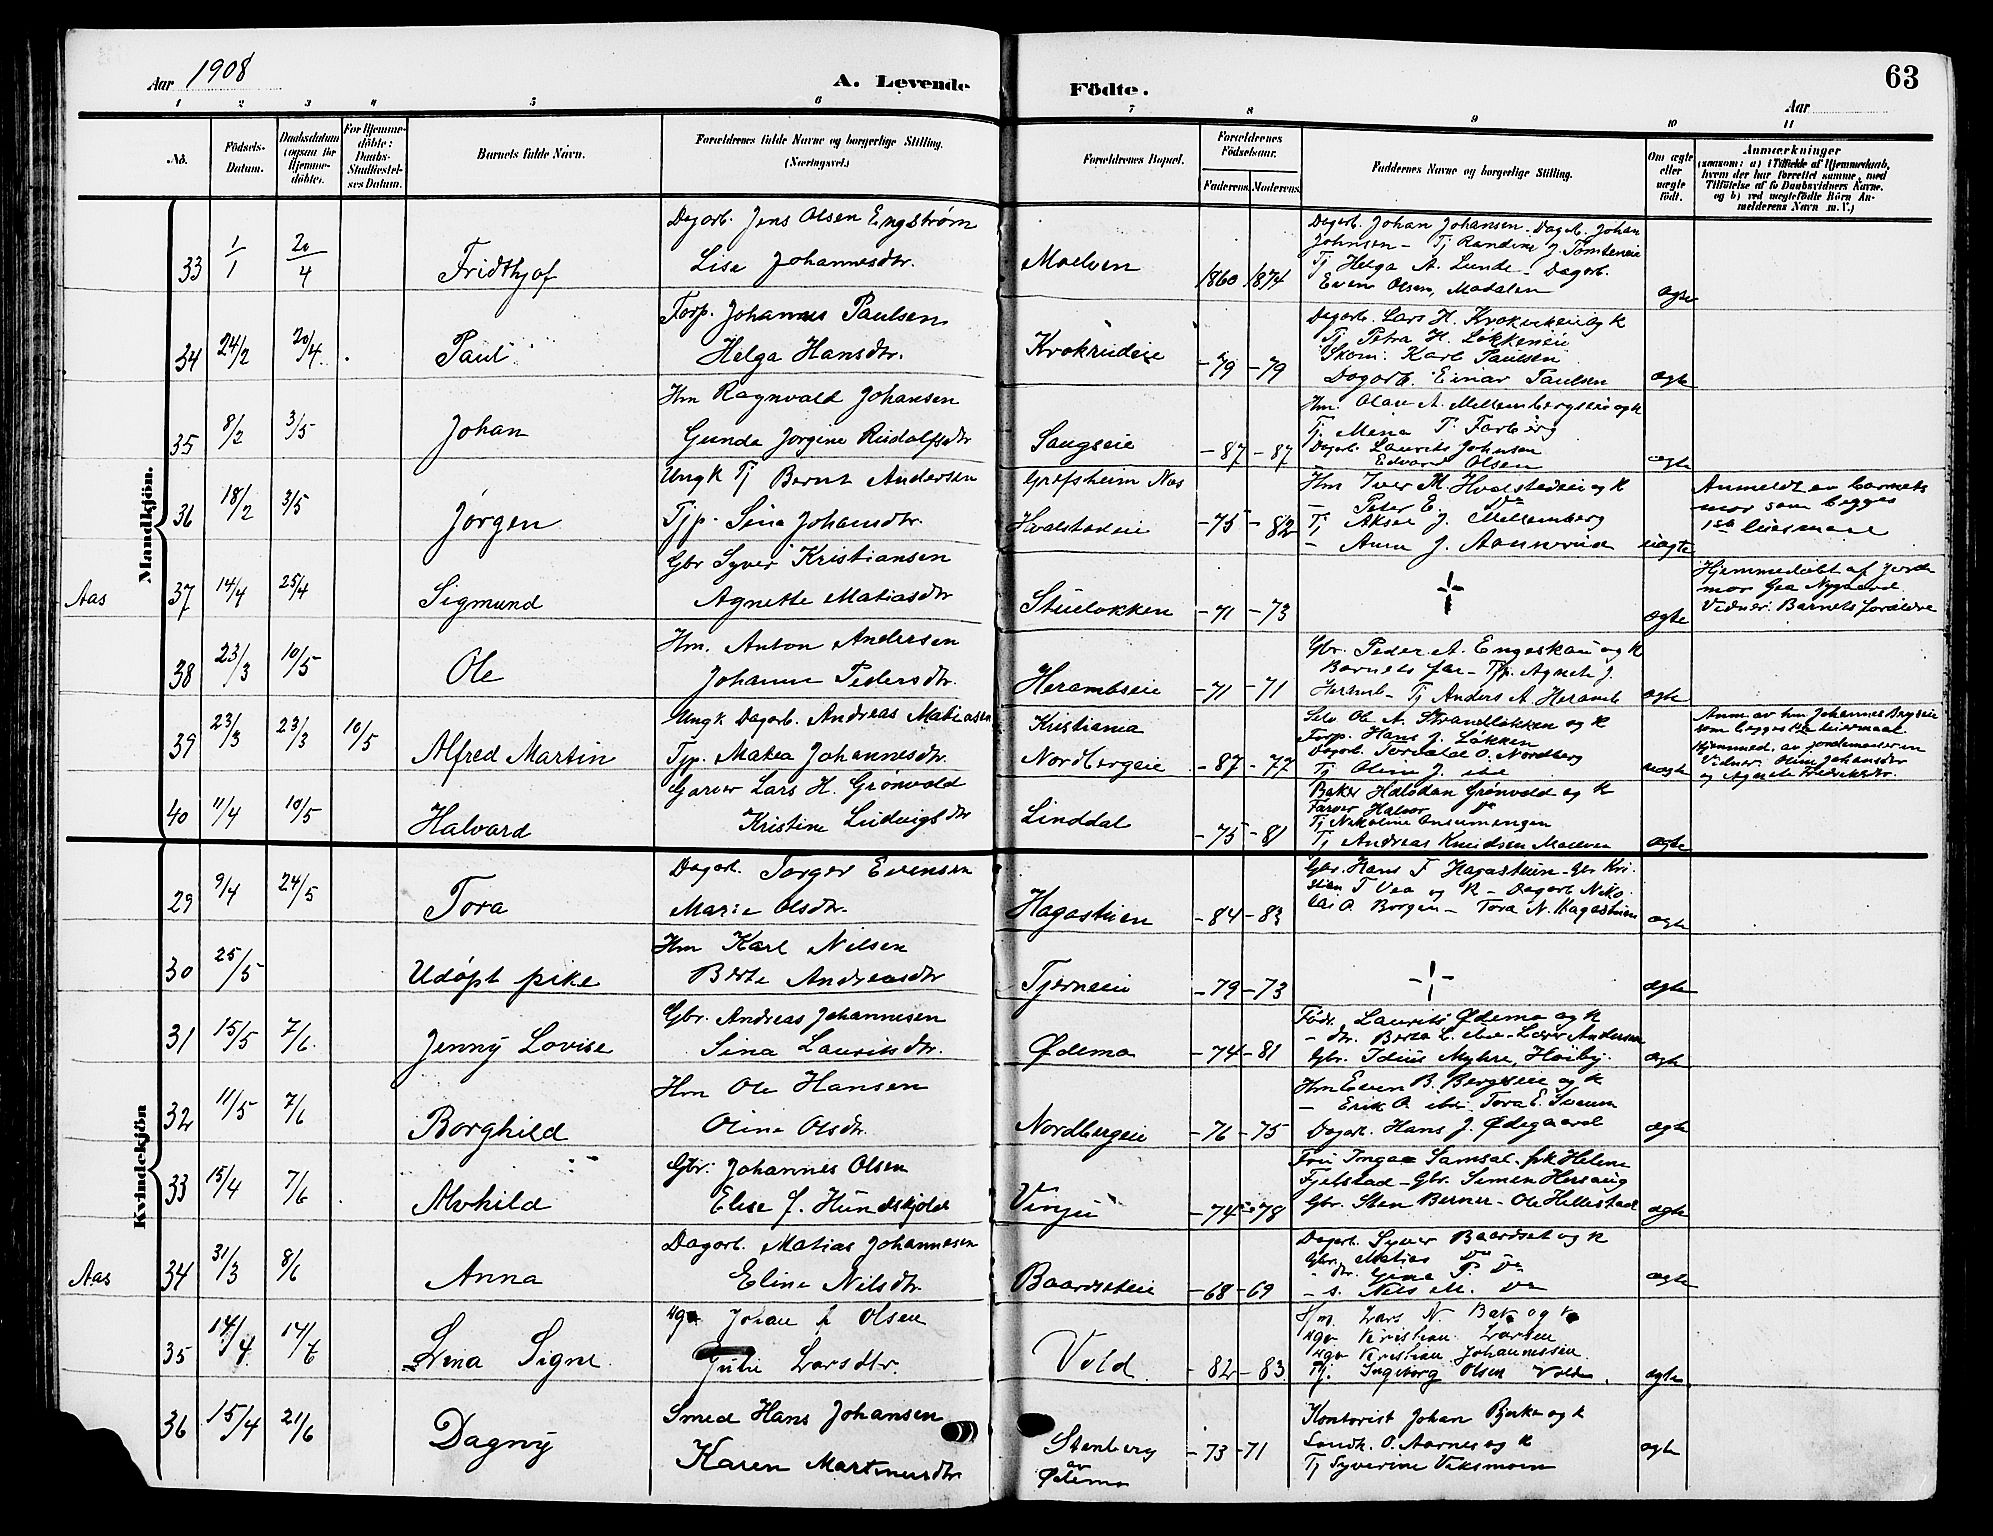 Aar 1908
A. Levende
Födte.
63
Aar
1 2 3 4 5 6 7 8 9 10 11
No.
Födsels-Datum.
Daabsdatum (ogsaa for Hjemmedöbte).
For Hjemmedöbte: Daabs-Stadfæstelses Datum.
Barnets fulde Navn.
Forældrenes fulde Navne og borgerlige Stilling. (Næringsvei.)
Forældrenes Bopæl.
Forældrenes Födselsaar.
Faderens. Moderens.
Faddernes Navne og borgerlige Stilling.
Om ægte eller uægte födt.
Anmærkninger
(saasom: a) i Tilfælde af Hjemmedaab, hvem der har forrettet samme, med Tilföielse af to Daabsvidners Navne, og b) ved uægtefödte Börn Anmelderens Navn m. V.)
Mandkjön.
33 1/1 20/4 Fridthjof
Dagarb. Jens Olsen Engstrøm
Lise Johannesdtr.
Moelven 1860 1874
Dagarb. Johan Johansen - Dagarb. Johan
Johnsen - Tj Randine J Tomteneie
Tj Helga A. Lunde - Dagarb.
Even Olsen, Modalen
ægte
34 24/2 20/4 Paul
Forp. Johannes Paulsen
Helga Hansdtr.
Krokrudeie -79 -79
Dagarb. Lars H. Krokrudeie og k
Tj Petra H. Løkkeneie
Skom. Karl Paulsen
Dagarb. Einar Paulsen
ægte
35 8/2 3/5 Johan
Hm Ragnvald Johansen
Gunda Jørgine Rudolfsdtr
Saugseie -87 -87
Hm. Olav A. Mellembergseie og k
Tj. Mina T. Farberg
Dagarb. Laurits Johnsen
- Edvard Olsen
ægte
36 18/2 3/5 Jørgen
Ungk Tj Bernt Andersen
Tjp. Sina Johansdtr.
Grefsheim Nes
Hvalstadeie -75 -82
Hm Iver M. Hvalstadeie og k
- Peter E. Do
Tj Aksel J. Mellemberg
- Anna J. Aannerud
uægte
Anmeldt av barnets
mor som begges
1ste leiermaal
Aas
37 14/4 25/4 Sigmund
Gbr Syver Kristiansen
Agnette Matiasdtr
Stueløkken -71 -73
ægte
Hjemmedøbt af jorde
mor Gea Nygaard
Vidner: Barnets forældre
38 23/3 10/5 Ole
Hm. Anton Andersen
Johanne Pedersdtr.
Herambseie -71 -71
Gbr. Peder A. Engeskau og k
Barnets far - Tjp. Agnete J.
Heramb - Tj Anders A Heramb
ægte
39 23/3 23/3 10/5 Alfred Martin
Ungk Dagarb. Andreas Matiasen
Tjp. Matea Johannesdtr.
Kristiania
Nordbergeie -87 -77
Selv. Ole A. Strandløkken og k
Forp. Hans J. Løkken
Dagarb. Torvald O. Nordberg
Tj Oline J. ibd
uægte
Anm av hm Johannes Bergseie
som begges 1ste leiermaal
Hjemmed. av jordemoderen
Vidner: Oline Johansdtr
og Agnete Fredriksdtr.
40 11/4 10/5 Halvard
Garver Lars H. Grønvold
Kristine Ludvigsdtr
Linddal -75 -81
Baker Halvdan Grønvold og k
Farver Halvor Do
Tj Nikoline Ensumengen
Tj Andreas Knudsen Moelven
ægte
Kvindekjön
29 9/4 24/5 Tora
Dagarb. Torger Evensen
Marie Olsdtr.
Hagastuen -84 -83
Gbr. Hans T Hagastuen - Gbr Kri-
stian T Vea og k - Dagarb Niko-
lai O. Borgen - Tora N. Hagastuen
ægte
30 25/5 Udøpt pike
Hm Karl Nilsen
Berte Andreasdtr
Tjerneie -79 -73
ægte
31 15/5 7/6 Jenny Lovise
Gbr. Andreas Johannesen
Sina Lauritsdtr.
Ødemo -74 -81
Födr. Laurits Ødemo og k
- dtr. Berta L. ibd - Lærer Andersen
Gbr. Idius Myhre, Høiby.
ægte
32 11/5 7/6 Borghild
Hm Ole Hansen
Oline Olsdtr.
Nordbergeie -76 -75
Hm Even B. Bergseie og k
- Erik O. ibd. Tora E. Svenn
Dagarb. Hans J. Ødegaard
ægte
33 15/4 7/6 Alvhild
Gbr. Johannes Olsen
Elise J. Hundskjold
Vinju -74 -78
Fru Inga Samsal. pk Helene
Fjelstad - Gbr. Simen Hersaug
Gbr. Sten Berner - Ole Hellestad
ægte
Aas
34 31/3 8/6 Anna
Dagarb. Matias Johannesen
Eline Nilsdtr.
Baardseteie -68 -69
Dagarb. Syver Baardset og k
Gbr. Matias Do
- dtr. Gina P. Do
- s. Nils M. Do
ægte
35 14/4 14/6 Lina Signe
Johan Olsen
Julie Larsdtr.
Vold -82 -83
Hm. Lars N. Bak og k
Kristian Larsen
Kristian Johannessen
Pj. Ingeborg Olsen Volden.
ægte
36 15/4 21/6 Dagny
Smed Hans Johansen
Karen Martinusdtr.
Stenberg
av
Ødemo -73 -71
Kontorist Johan Bakke og k
Landh. O. Aarnes og k
Tj Syverine Viksmoen
ægte